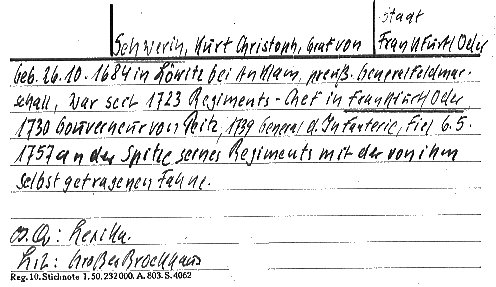 Stadt
Schwerin, Kurt Christoph, Graf von Frankfurt/Oder
geb. 26.10.1684 in Löwitz bei Anklam, preuß. Generalfeldmar-
schall, war seit 1723 Regiments-Chef in Frankfurt/Oder
1730 Gouverneur von Peitz, 1739 General d. Infanterie, fiel 6.5.
1757 an der Spitze seines Regiments mit der von ihm
selbst getragenen Fahne.
Lit: Großer Brockhaus
Reg. 10. Stichnote 1. 50. 232000. A. 803. S. 4062